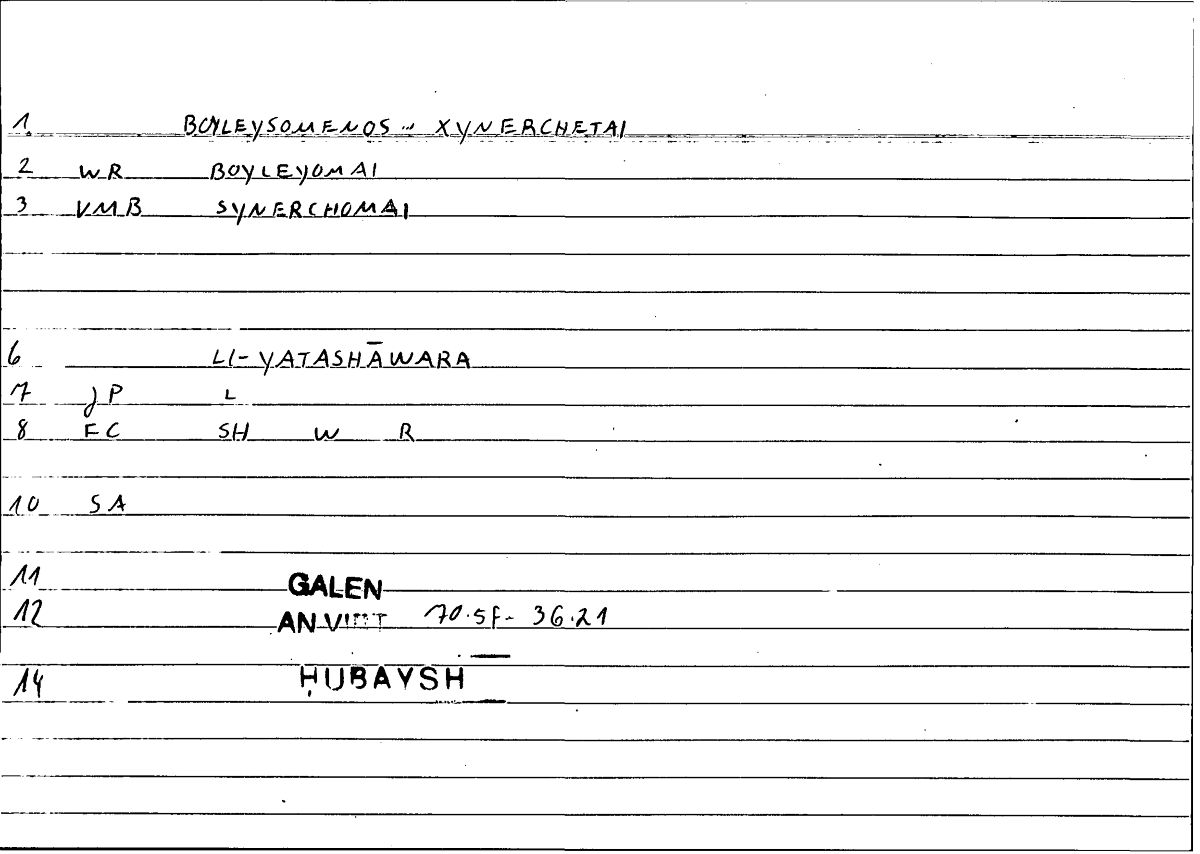 1. BOYLEYSOMENOS .. XYNERCHETAI
2 WR BOYLEYOMAI
3 VMB SYNERCHOMAI
6 LI-YATASHĀWARA
7 JP L
8 FC SH W R
10 SA
11 GALEN
12 AN VIRT 70.5F- 36.21
14 ḤUBAYSH